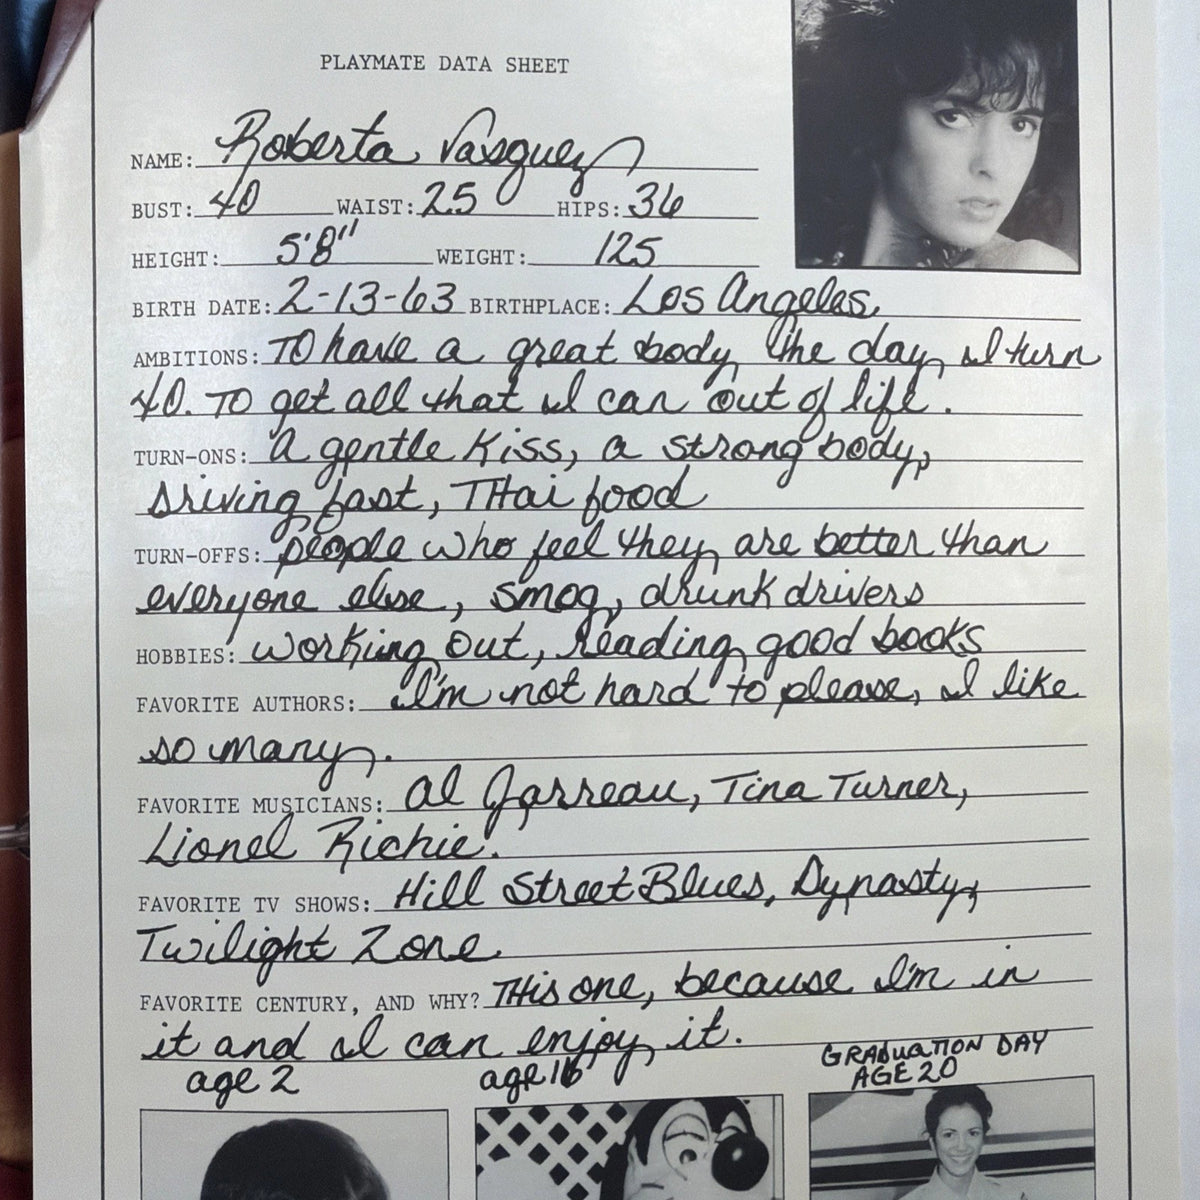 PLAYMATE DATA SHEET
NAME: Roberta Vasquez
BUST: 40 WAIST: 25 HIPS: 36
HEIGHT: 5'8" WEIGHT: 125
BIRTH DATE: 2-13-63 BIRTHPLACE: Los Angeles
AMBITIONS: TO have a great body the day I turn
40. TO get all that I can out of life.
TURN-ONS: A gentle kiss, a strong body,
driving fast, THai food
TURN-OFFS: people who feel they are better than
everyone else, smog, drunk drivers
HOBBIES: working out, reading good books
FAVORITE AUTHORS: I'm not hard to please, I like
so many.
FAVORITE MUSICIANS: Al Jarreau, Tina Turner,
Lionel Richie.
FAVORITE TV SHOWS: Hill Street Blues, Dynasty,
Twilight Zone
FAVORITE CENTURY, AND WHY? THis one, because I'm in
it and I can enjoy it.
age 2 age 16 GRADUATION DAY
AGE 20